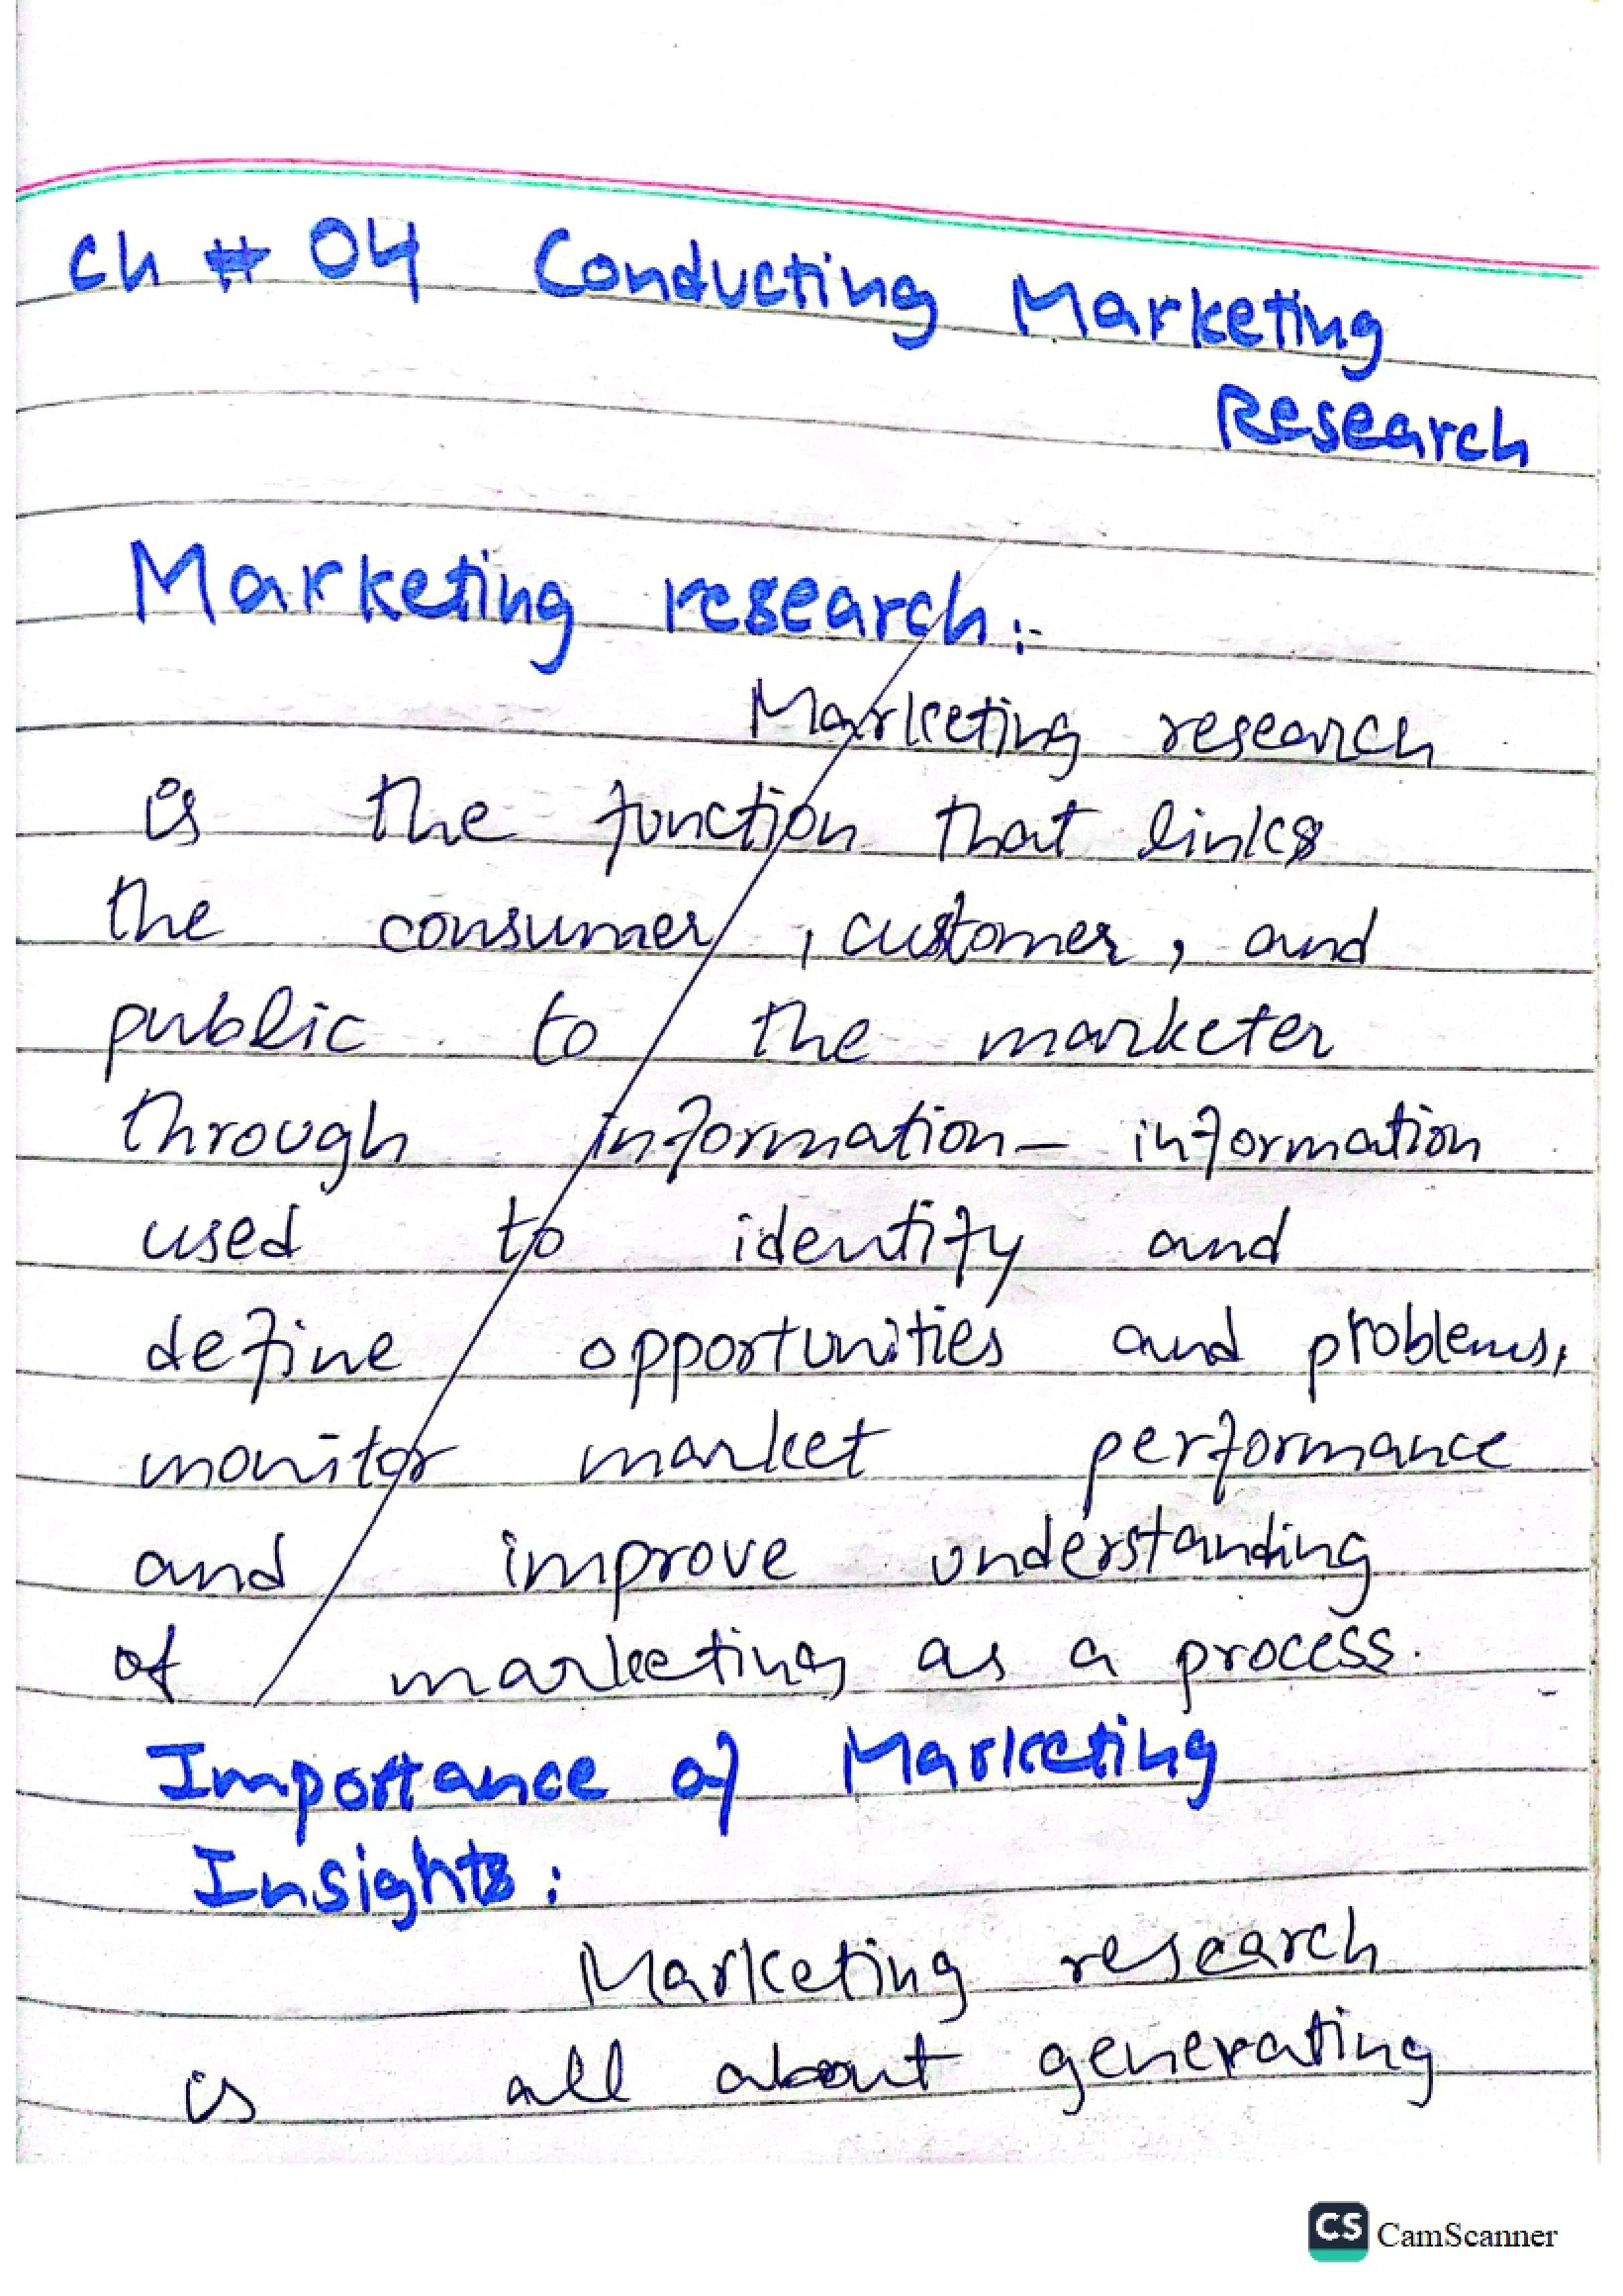 Ch # 04 Conducting Marketing
Research
Marketing research:-
Marketing research
is the function that links
the consumer, customer, and
public to the marketer
through information - information
used to identify and
define opportunities and problems,
monitor market performance
and improve understanding
of marketing as a process.
Importance of Marketing
Insights:
Marketing research
is all about generating
CS CamScanner